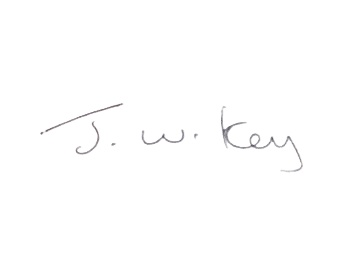 J. W. Key